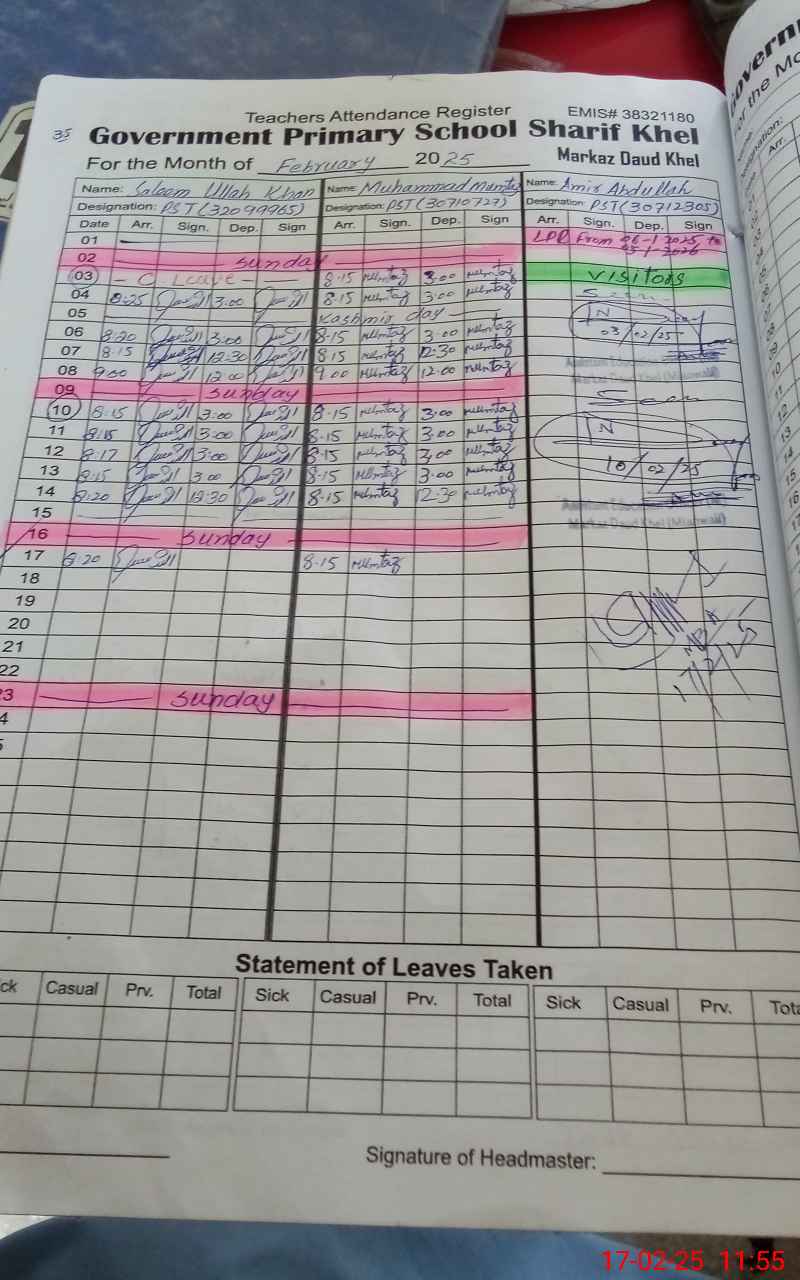 35
Teachers Attendance Register EMIS# 38321180
Government Primary School Sharif Khel
For the Month of February 2025 Markaz Daud Khel
Name: Saleem Ullah Khan Name: Muhammad Mumtaz Name: Amir Abdullah
Designation: PST (32099965) Designation: PST (30710727) Designation: PST (30712305)
Date Arr. Sign. Dep. Sign Arr. Sign. Dep. Sign Arr. Sign. Dep. Sign
01 LPR From 06-1-2025 to
02 Sunday 05-1-2026
03 C Leave 8.15 Mumtaz 3.00 Mumtaz visitors
04 8:25 3:00 8.15 Mumtaz 3.00 Mumtaz Seen
05 Kashmir day IN
06 8:20 3:00 8.15 Mumtaz 3.00 Mumtaz 03/02/25
07 8:15 12:30 8.15 Mumtaz 12.30 Mumtaz
08 9:00 12:00 9.00 Mumtaz 12.00 Mumtaz
09 Sunday Seen
10 8:15 3:00 8.15 Mumtaz 3.00 Mumtaz IN
11 8:15 3:00 8.15 Mumtaz 3.00 Mumtaz
12 8:17 3:00 8.15 Mumtaz 3.00 Mumtaz 10/02/25
13 8:15 3:00 8.15 Mumtaz 3.00 Mumtaz
14 8:20 12:30 8.15 Mumtaz 12.30 Mumtaz
15 Markaz Daud Khel (Mianwali)
16 Sunday
17 8:20 8.15 Mumtaz
18
19
20 MEA
21 17/2/25
22
3 Sunday
4
Statement of Leaves Taken
ck Casual Prv. Total Sick Casual Prv. Total Sick Casual Prv. Tota
Signature of Headmaster:
17-02-25 11:55